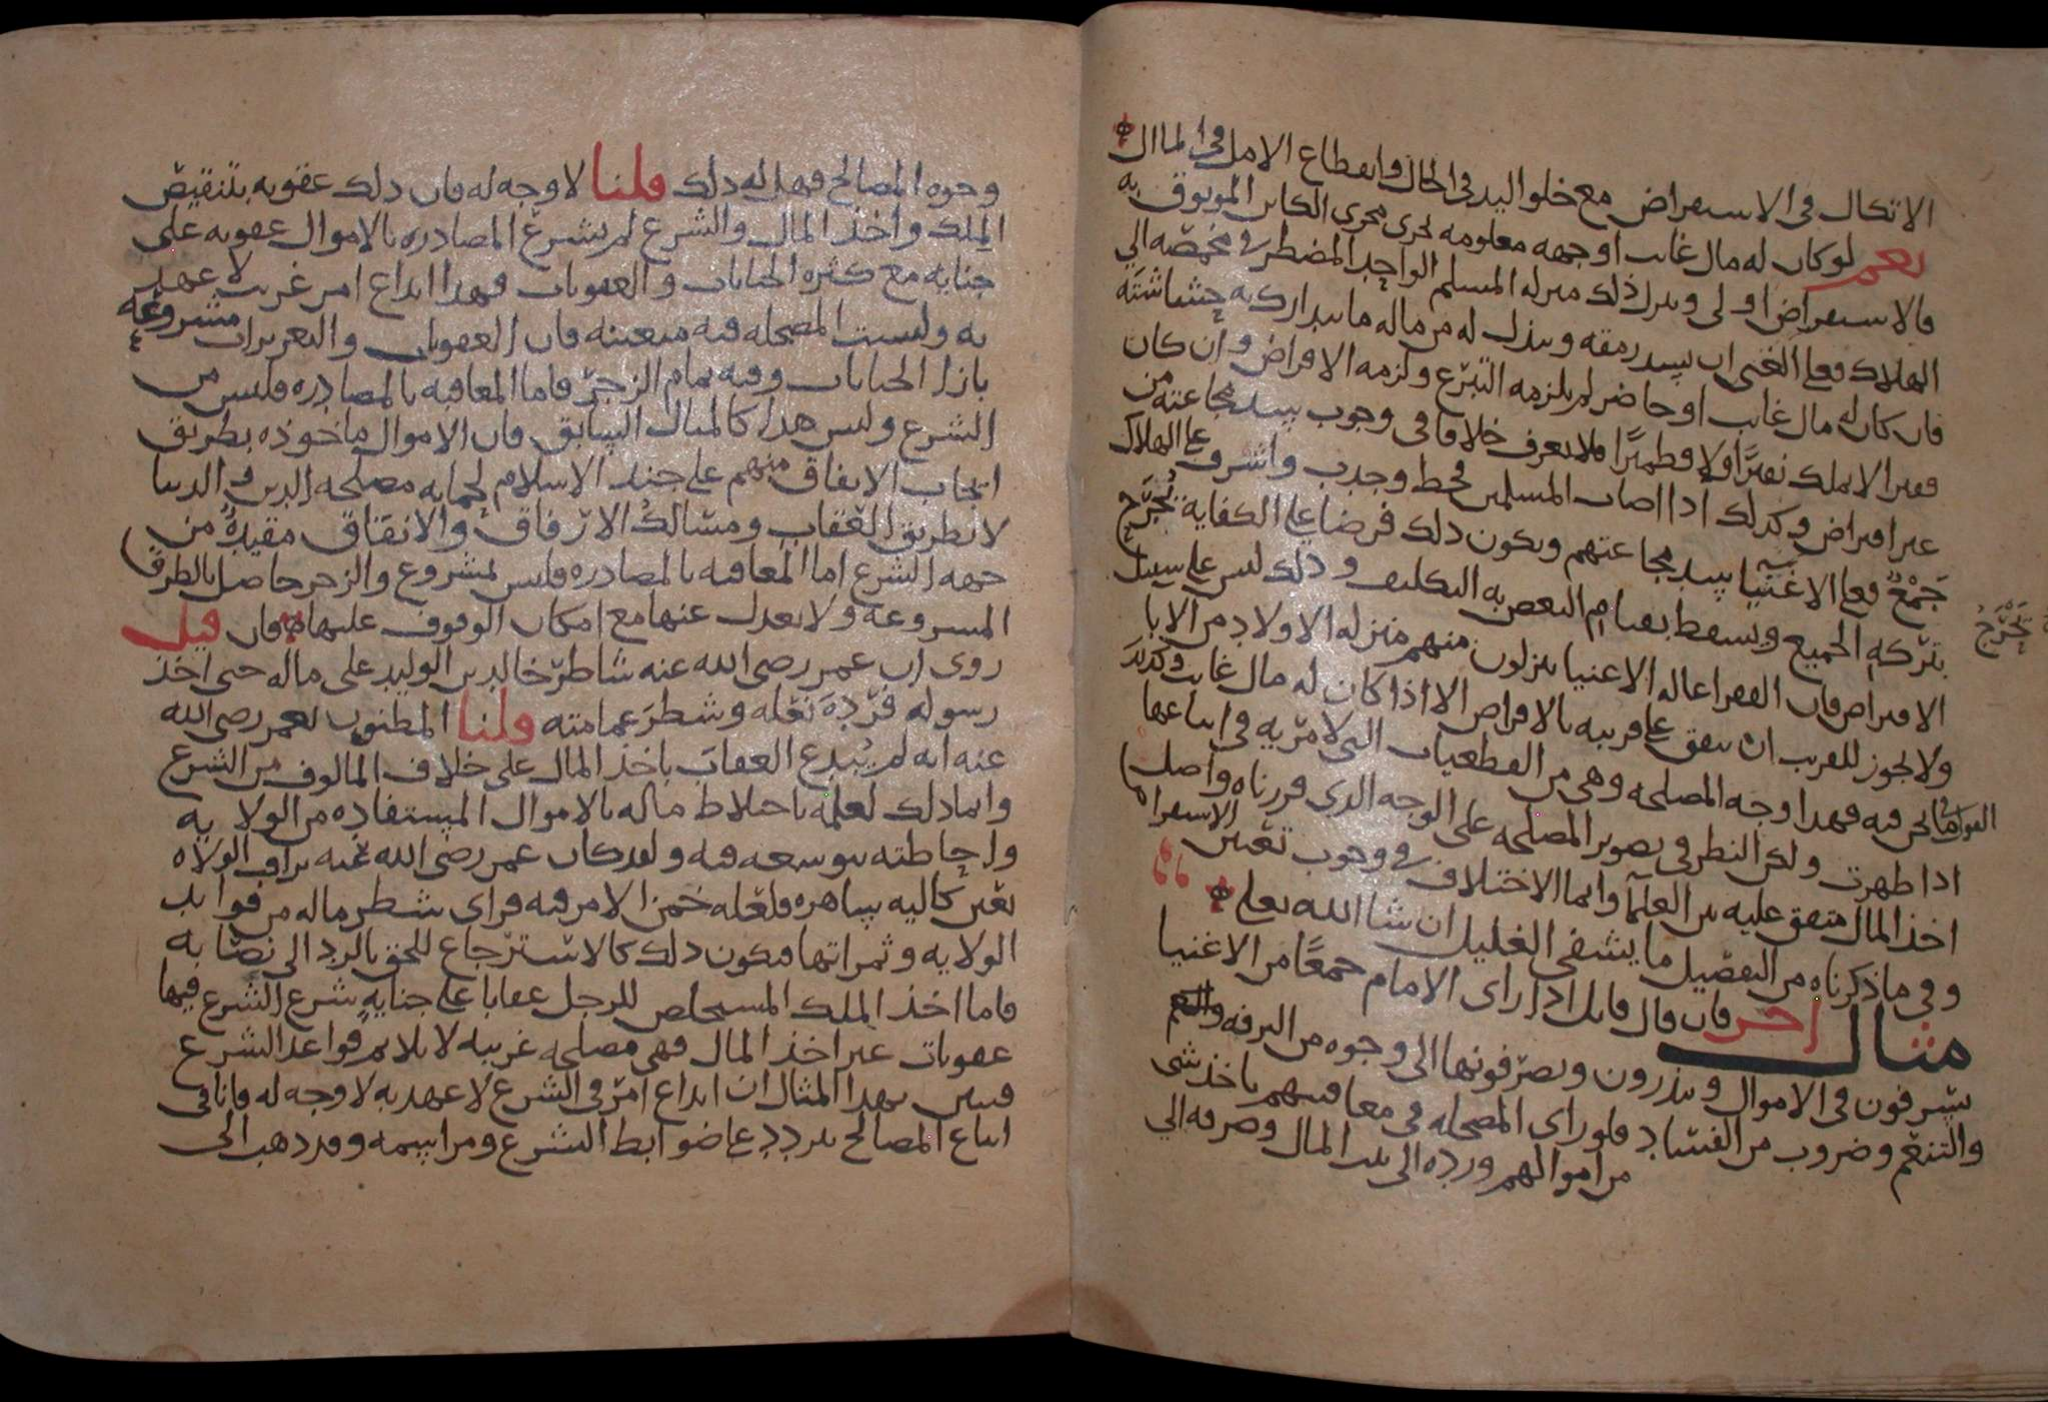 الاتكال في الاستقراض مع خلو اليد في الحال وانقطاع الامل في المال
نعم لو كان له مال غائب او جهه معلومه تجري مجرى الكائن الموثوق به
فالاستقراض اولى وينزل ذلك منزله المسلم الواحد المضطر في مخمصه الى
الهلاك فعلى الغني ان يسد رمقه ويبذل له من ماله ما يتدارك به حشاشته
فان كان له مال غائب او حاضر لم يلزمه التبرع ولزمه الاقراض وان كان
فقيرا لا يملك نقيرًا ولا قطميرًا فلا نعرف خلافا في وجوب سد مجاعته من
غير اقراض وكذلك اذا اصاب المسلمين قحط وجدب واشرف على الهلاك
جَمْعٌ فعلى الاغنيا سد مجاعتهم ويكون ذلك فرضا على الكفاية تُحَرَّج
بتركه الجميع ويسقط بقيام البعض به التكليف وذلك ليس على سبيل
تَحَرَّجُ
الاقتراض فان الفقرا عاله الاغنيا ينزلون منهم منزله الاولاد من الابا
ولا يجوز للقريب ان ينفق على قريبه بالاقراض الا اذا كان له مال غائب وكذلك
القول فيما نحن فيه فهذا وجه المصلحه وهي من القطعيات التي لا مرّيه في اتباعها
اذا ظهرت ولكن النظر في تصوير المصلحه على الوجه الذي قررناه واصل
اخذ المال متفق عليه بين العلمآ وانما الاختلاف في وجوب تعيّن الاستقراض
وفي ما ذكرناه من التفصيل ما يشفي الغليل ان شا الله تعلى
مثال اخر فان قال قائل اذا راى الامام جمعًا من الاغنيا
يسرفون في الاموال ويبذرون ويصرّفونها الى وجوه من الترفه
والتنعّم وضروب من الفساد فلو راى المصلحه في معاقبتهم باخذ شي
من اموالهم ورده الى بيت المال وصرفه الى
وجوه المصالح فهل له ذلك قلنا لا وجه له فان ذلك عقوبه بتنقيص
الملك واخذ المال والشرع لم يشرع المصادره بالاموال عقوبه على
جنايه مع كثره الجنايات والعقوبات فهذا ابداع امر غريب لا عهد
به وليست المصلحه فيه متعينه فان العقوبات والتعزيرات مشروعَه
بازا الجنايات وفيه تمام الزجرّ فاما المعاقبه بالمصادره فليس من
الشرع وليس هذا كالمثال السابق فان الاموال ماخوذه بطريق
ايجاب الانفاق منهم على جند الاسلام لحمايه مصلحه الدين والدنيا
لا بطريق العقاب ومسالك الارفاق والانفاق مقيدةٌ من
جهه الشرع اما المعاقبه بالمصادره فليس بمشروع والزجر حاصل بالطرق
المشروعه ولا يعدل عنها مع امكان الوقوف عليها فان قيل
روى ان عمر رضى الله عنه شاطرَ خالد بن الوليد على ماله حتى اخذ
رسوله فرْدِهَ نَعْله وشطرَ عمامته قلنا المظنون بعمر رضى الله
عنه انه لم يُبدع العقابَ باخذ المال على خلاف المالوف من الشرع
وانما ذلك لعلمه باختلاط ماله بالاموال المستفاده من الولايه
واحاطته بتوسعه فيه ولقد كان عمر رضى الله عنه يراقب الولاه
بعَين كاليه ساهره فلعّله خمن الامر فيه فراى شطر ماله من فوايد
الولايه وثمراتها فيكون ذلك كالاسترّجاع للحق بالرد الى نصابه
فاما اخذ الملك المستخلص للرجل عقابا على جنايهٍ شرع الشرع فيها
عقوبات غير اخذ المال فهي مصلحه غريبه لا يلايم قواعد الشرع
فتبين بهذا المثال ان ابداع امرٍّ في الشرع لا عهد به لا وجه له وانا في
اتباع المصالح نتردد على ضوابط الشرع ومراسمه وقد ذهب الى